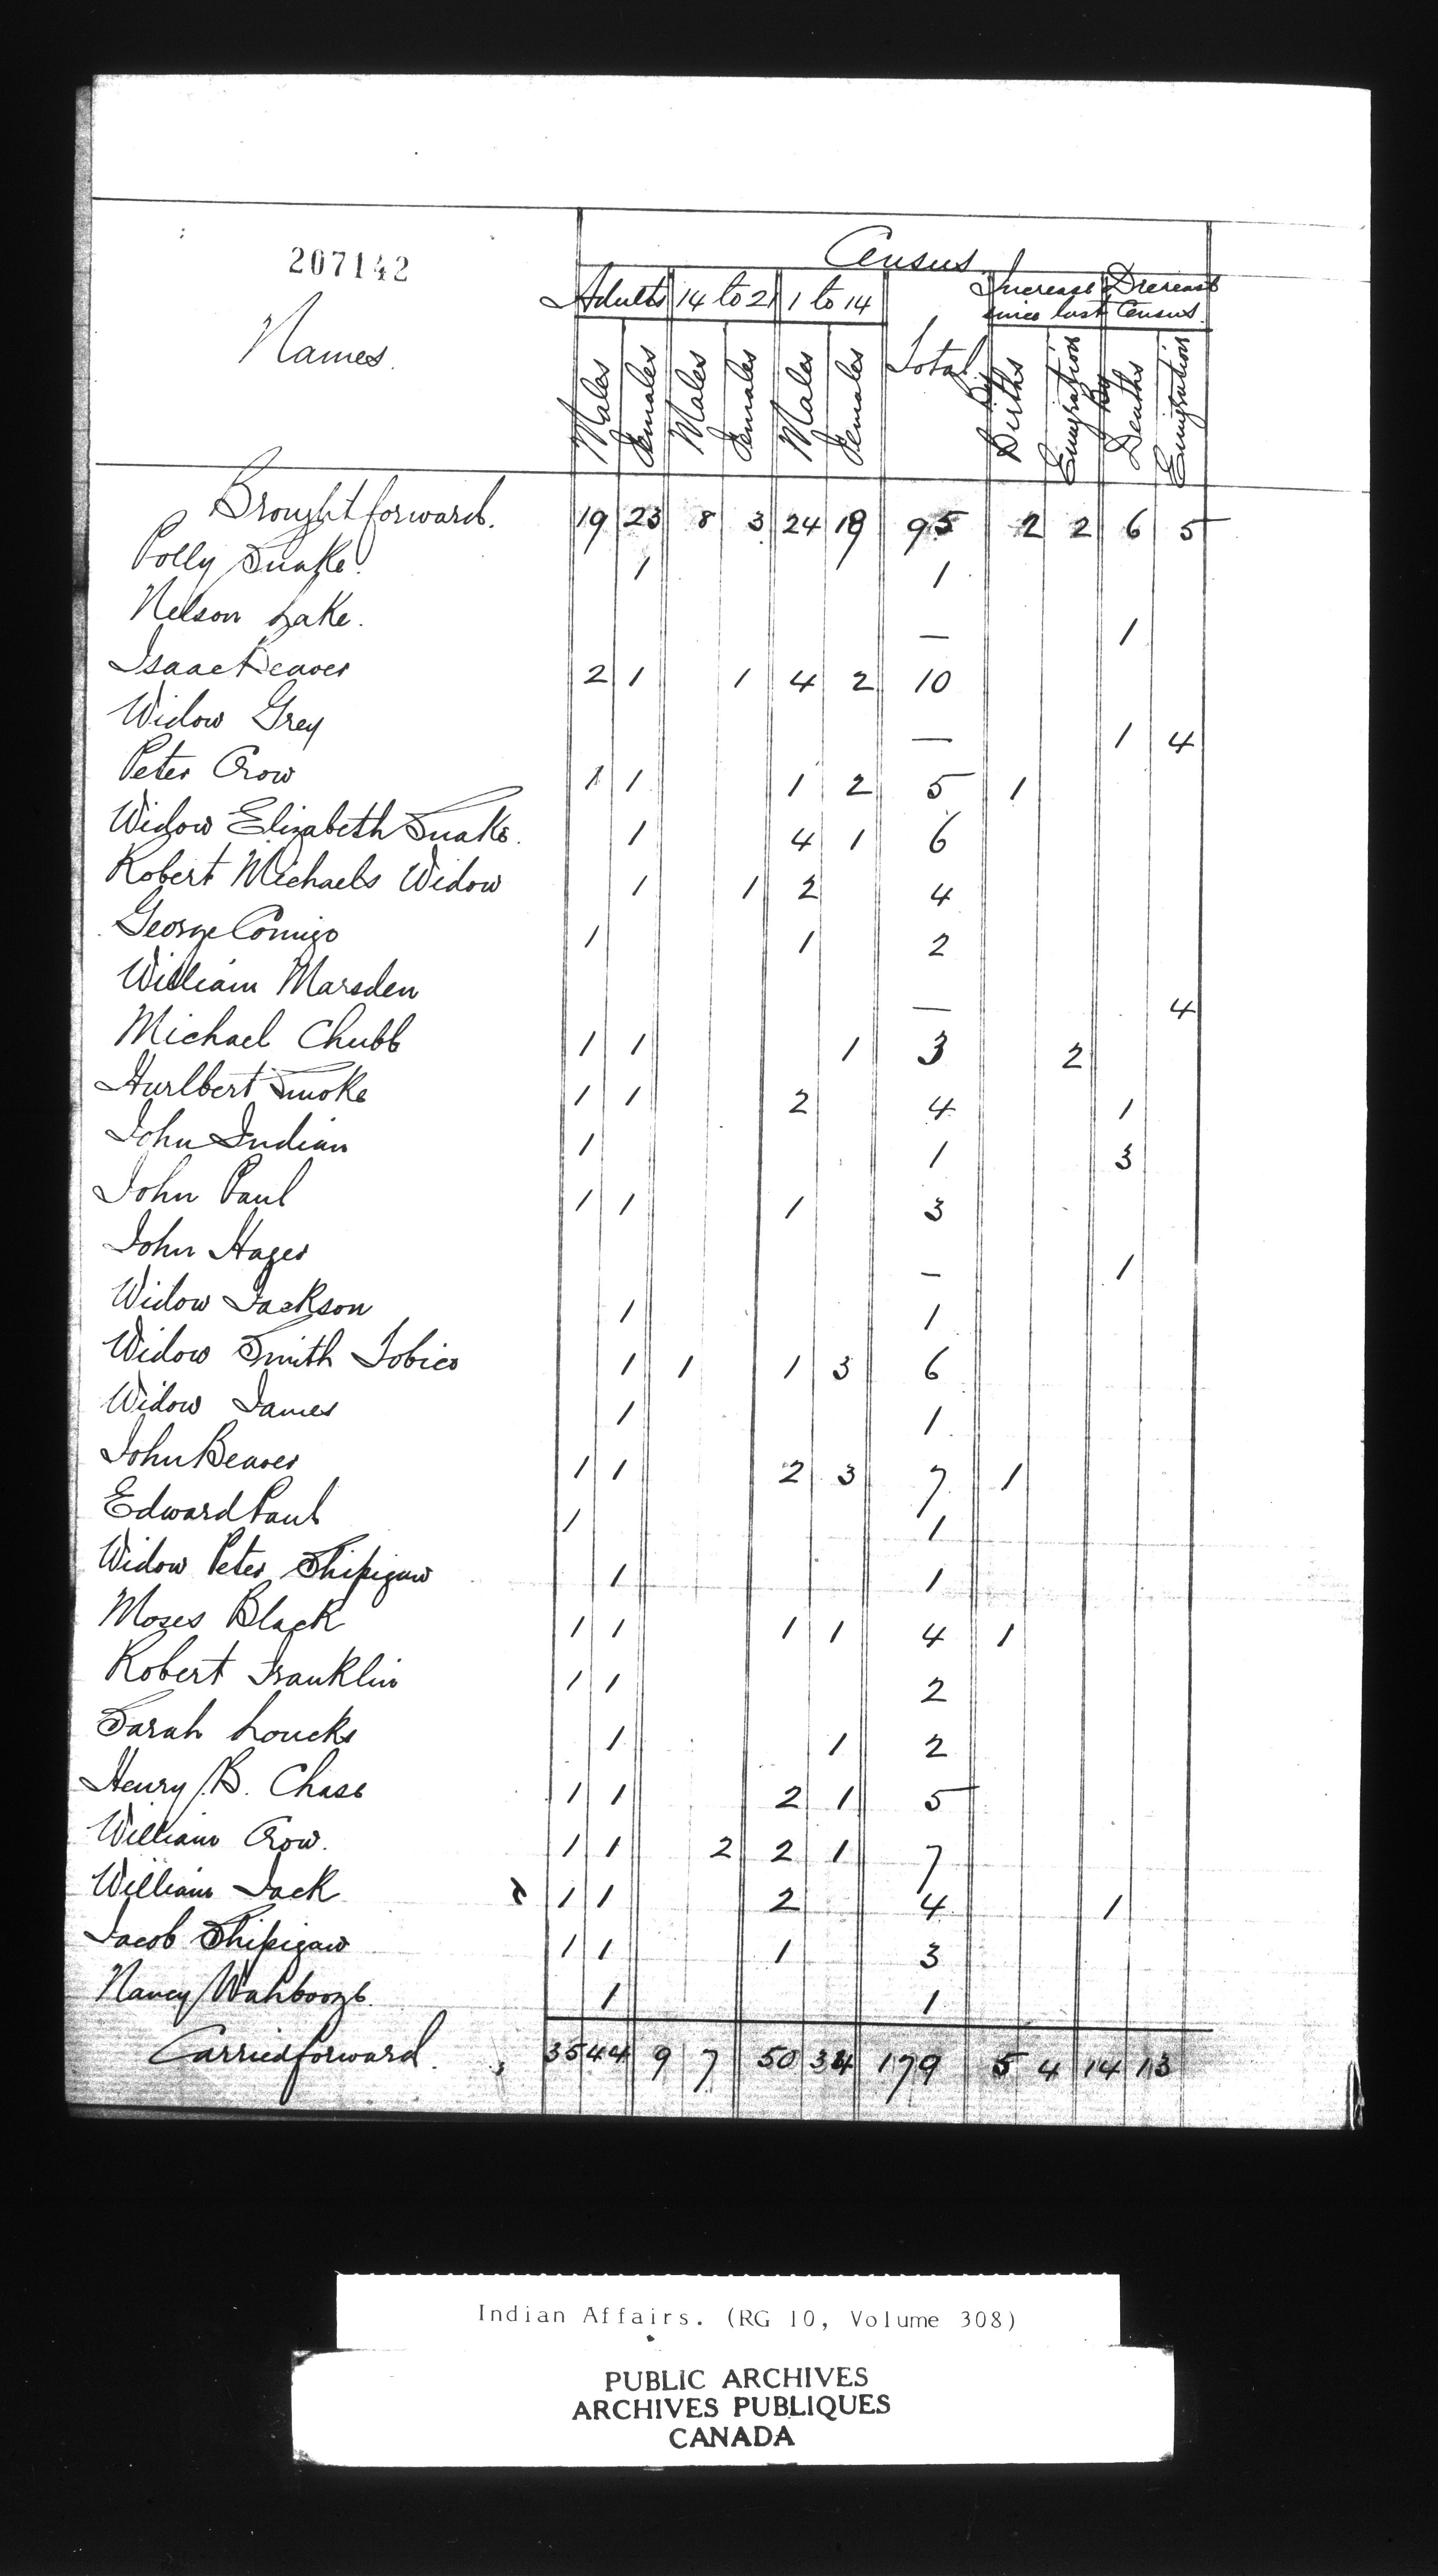 207142
Census
Names.
Adults 14 to 21 1 to 14 Total Increase since last Decrease Census.
Males Females Males Females Males Females By Births Emigration By Deaths Emigration
Brought forward. 19 23 8 3 24 18 95 2 2 6 5
Polly Snake. 1 1
Nelson Lake. — 1
Isaac Beaver 2 1 1 4 2 10
Widow Grey — 1 4
Peter Crow 1 1 1 2 5 1
Widow Elizabeth Snake. 1 4 1 6
Robert Michaels Widow 1 1 2 4
George Comigo 1 1 2
William Marsden — 4
Michael Chubb 1 1 1 3 2
Hurlbert Smoke 1 1 2 4 1
John Indian 1 1 3
John Paul 1 1 1 3
John Hager — 1
Widow Jackson 1 1
Widow Smith Tobico 1 1 1 3 6
Widow James 1 1
John Beaver 1 1 2 3 7 1
Edward Paul 1 1
Widow Peter Shipigaw 1 1
Moses Black 1 1 1 1 4 1
Robert Franklin 1 1 2
Sarah Loucks 1 1 2
Henry B. Chase 1 1 2 1 5
William Crow. 1 1 2 2 1 7
William Jack x 1 1 2 4 1
Jacob Shipigaw 1 1 1 3
Nancy Wahbooze. 1 1
Carried forward. 35 44 9 7 50 34 179 5 4 14 13
Indian Affairs. (RG 10, Volume 308)
PUBLIC ARCHIVES
ARCHIVES PUBLIQUES
CANADA